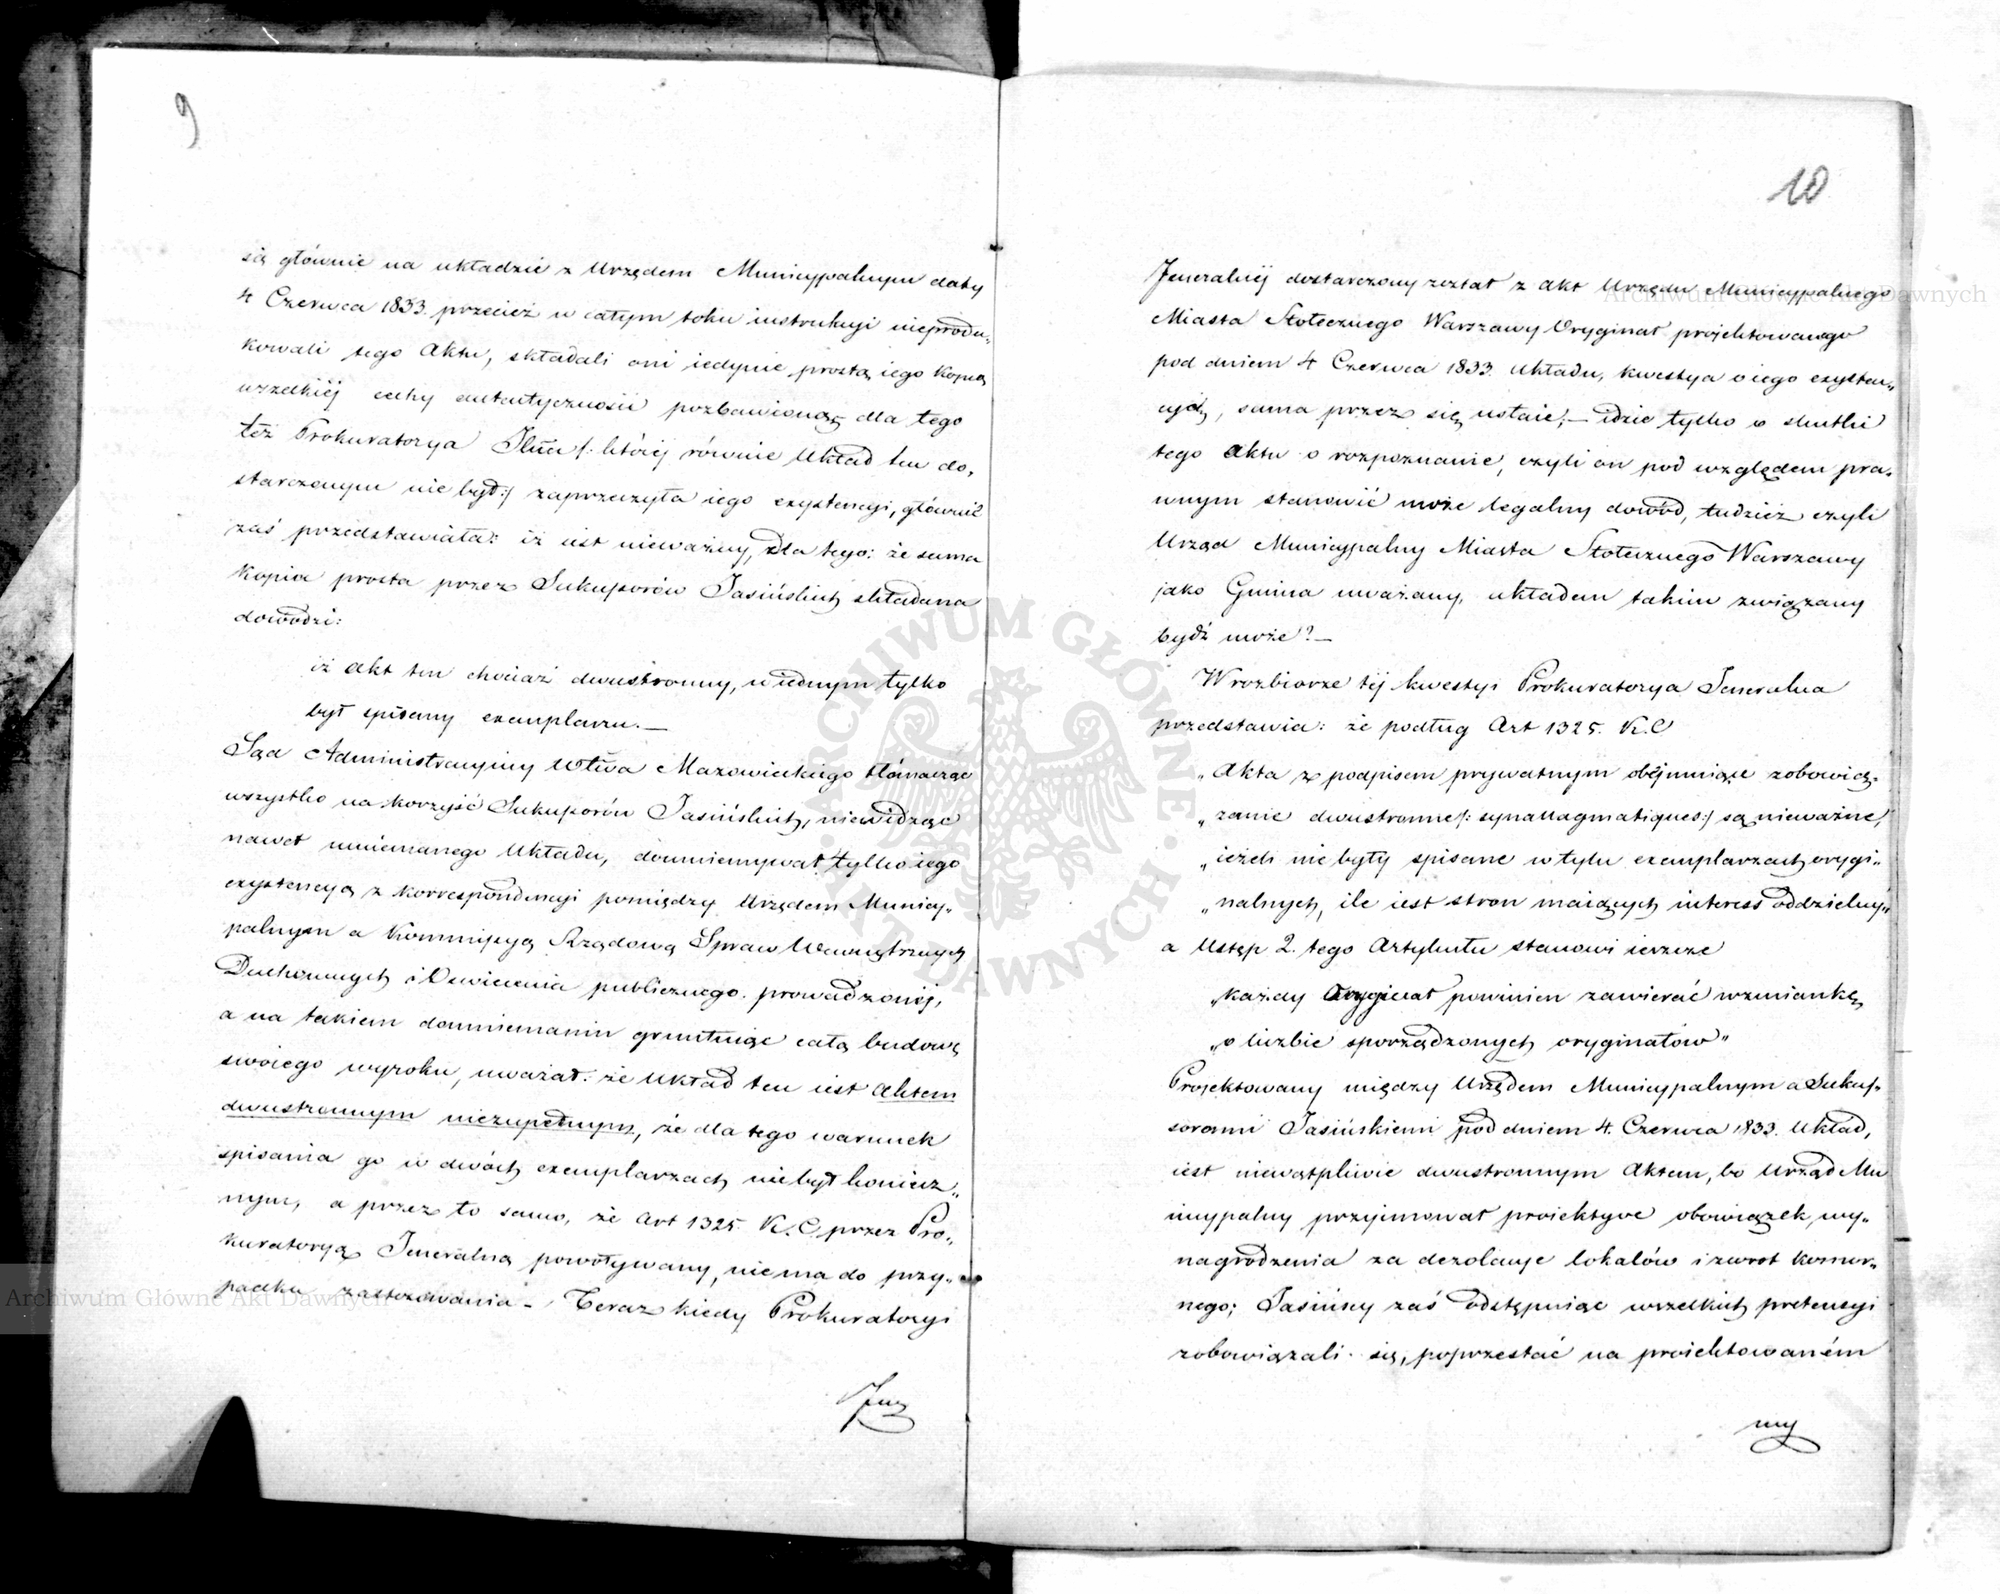 9
się głównie na układzie z Urzędem Municypalnym daty
4 Czerwca 1833. przecież w całym toku instrukcyi nieprodu„
kowali tego Aktu, składali oni iedynie prostą iego Kopią
wszelkiéj cechy autentyczności pozbawioną, dla tego
téż Prokuratorya Jlna /: któréj równie Układ ten do„
starczonym nie był :/ zaprzeczyła iego exystencyi, głównie
zaś przedstawiała: iż iest nieważny, dla tego: że sama
Kopia prosta przez Sukcessorów Jasińskich składana
dowodzi:
iż akt ten chociaż dwustronny, w iednym tylko
był spisany exemplarzu.—
Sąd Administracyiny Wtwa Mazowieckiego tłómacząc
wszystko na korzyść Sukcessorów Jasińskich, niewidząc
nawet mniemanego Układu, domniemywał tylko iego
exystencyą z korrespondencyi pomiędzy Urzędem Municy„
palnym a Kommissyą Rządową Spraw Wewnętrznych
Duchownych i Oświecenia publicznego prowadzonéj,
a na takiem domniemaniu gruntuiąc całą budowę
swoiego wyroku, uważał: że Układ ten iest Aktem
dwustronnym niezupełnym, że dla tego warunek
spisania go w dwóch exemplarzach nie był koniecz„
nym, a przez to samo, że Art 1325. K. C. przez Pro„
kuratoryą Jeneralną powoływany, nie ma do przy„
padku zastosowania — Teraz kiedy Prokuratoryi
Jene
10
Jeneralnéj dostarczony został z akt Urzędu Municypalnego
Miasta Stołecznego Warszawy Oryginał projektowanego
pod dniem 4 Czerwca 1833. Układu, kwestya o iego exysten„
cyą, sama przez się ustaie;— idzie tylko o skutki
tego Aktu o rozpoznanie, czyli on pod względem pra„
wnym stanowić może legalny dowód, tudzież czyli
Urząd Municypalny Miasta Stołecznego Warszawy
jako Gmina uważany, układem takim związany
bydź może?—
W rozbiorze téj kwestyi Prokuratorya Jeneralna
przedstawia: że podług Art 1325. K. C
„Akta z podpisem prywatnym obéjmuiące zobowią„
„zanie dwustronne /: synallagmatiques :/ są nieważne,
„ieżeli nie były spisane w tylu exemplarzach orygi„
„nalnych, ile iest stron maiących interess oddzielny"
a Ustęp 2. tego Artykułu stanowi ieszcze
„każdy Oryginał powinien zawierać wzmiankę,
„o liczbie sporządzonych oryginałów"
Projektowany między Urzędem Municypalnym a Sukces„
sorami Jasińskiemi pod dniem 4. Czerwca 1833. Układ,
iest niewątpliwie dwustronnym Aktem, bo Urząd Mu
nicypalny przyimował proiektyve obowiązek wy„
nagrodzenia za dezolacye lokalów i zwrot komor„
nego; Jasińscy zaś odstępuiąc wszelkich pretensyi
zobowiązali się, poprzestać na proiektowaném
wy
Archiwum Główne Akt Dawnych